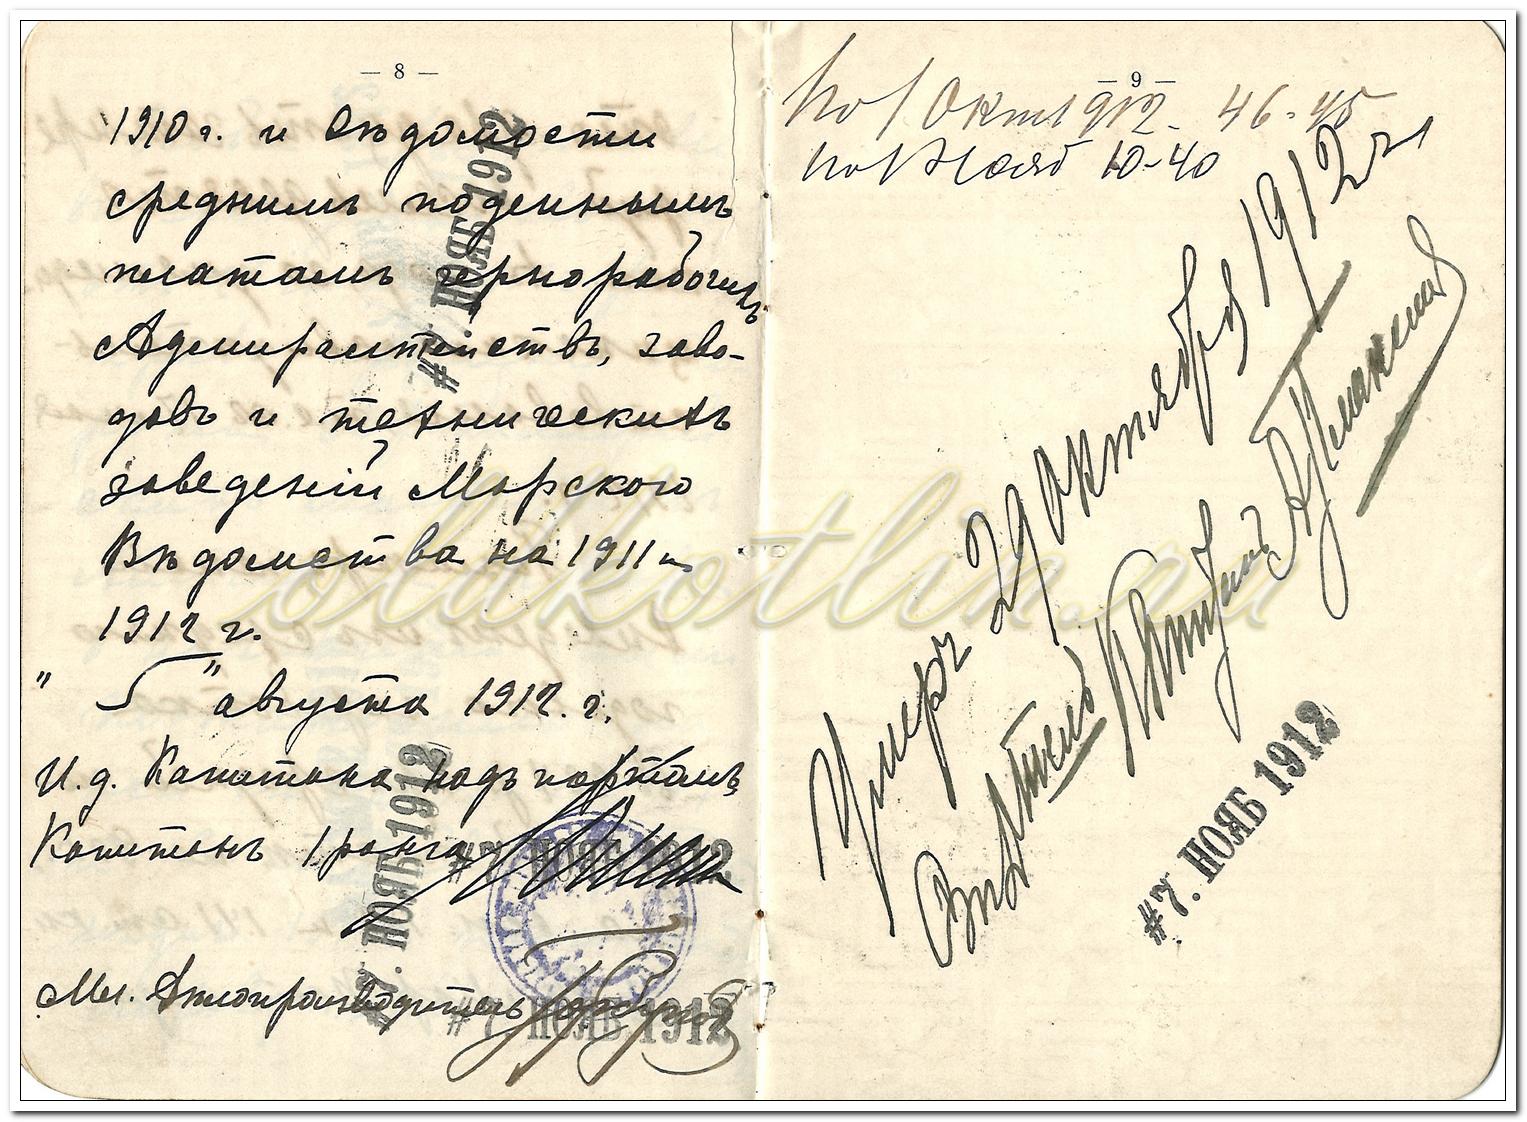 — 8 —
1910 г. и вѣдомости
среднимъ поденнымъ
платамъ чернорабочихъ
Адмиралтействъ, заво-
довъ и техническихъ
заведеній Морского
Вѣдомства на 1911 и
1912 г.
" 5 " августа 1912 г.
И. д. Капитана надъ портомъ,
Капитанъ 1 ранга
Мл. Дѣлопроизводитель
#7. НОЯБ 1912
#7. НОЯБ 1912
#7. НОЯБ 1912
#7. НОЯБ 1912
— 9 —
по 1 Окт 1912 - 46-45
по 1 Нояб 10-40
Умеръ 29 октября 1912 г.
#7. НОЯБ 1912
oldkotlin.ru